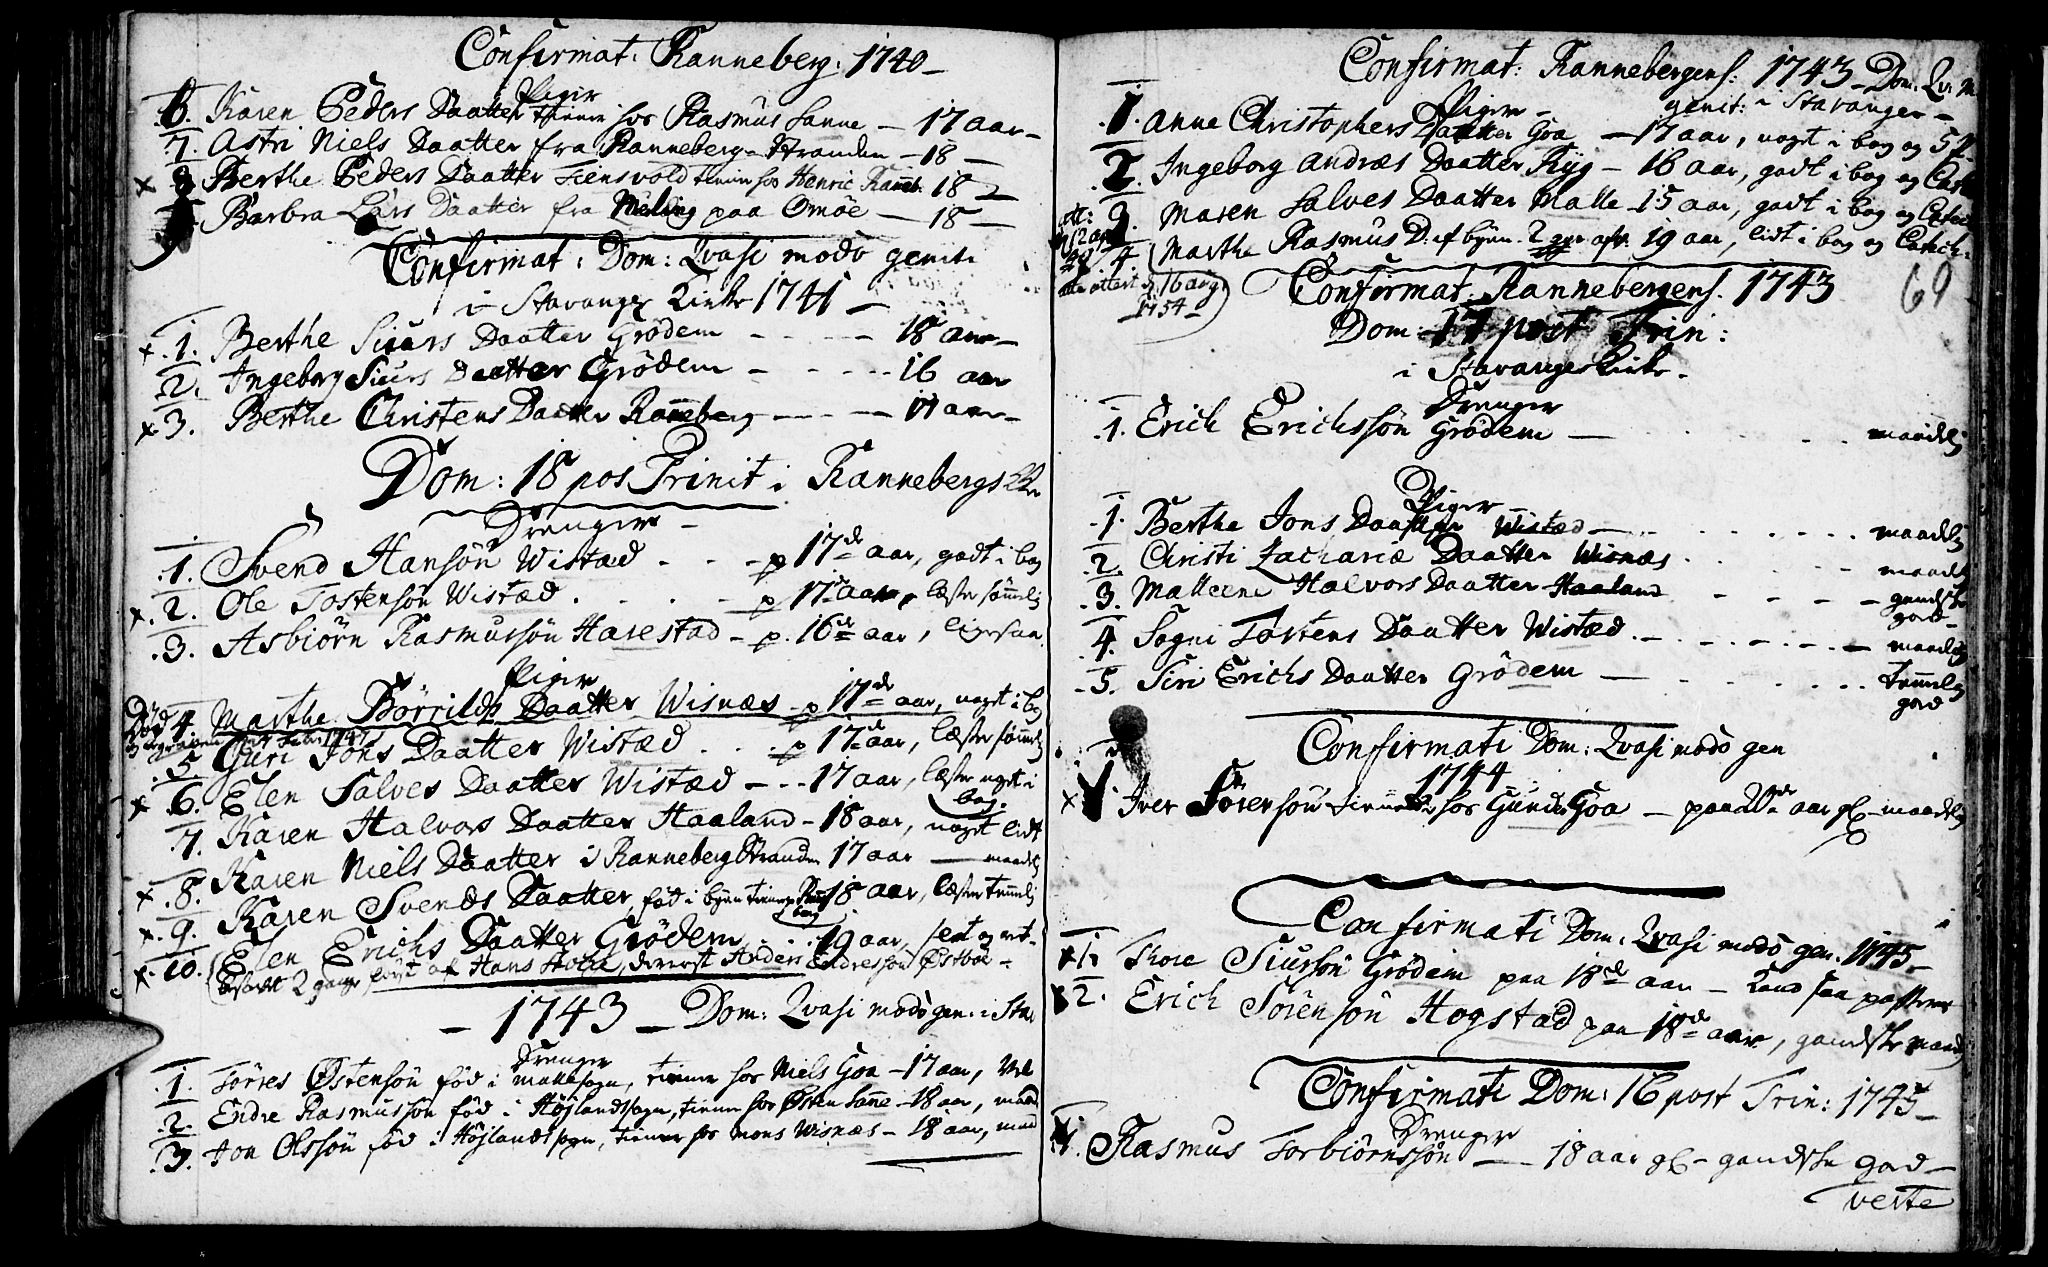 Confirmat: Ranneberg: 1740
Piger
6. Karen Peders Daatter tiener hos Rasmus Sanne - 17 aar
7. Astri Niels Daatter fra Ranneberg-Stranden - 18
8. Berthe Peders Daatter Tiensvold tiener hos Henric Ranneb. 18
9. Barbra Lars Daatter fra Meling paa Omöe - 18
Confirmat: Dom: Qvasi modo geniti
i Stavanger Kirke 1741
1. Berthe Siurs Daatter Grödem - 18 aar
2. Ingeborg Siurs Daatter Grödem - 16 aar
3. Berthe Christens Daatter Ranneberg - 17 aar
Dom: 18 pos Trinit i Rannebergs
Drenger
1. Svend Hansön Wistæd - p 17de aar, godt i bog
2. Ole Tostensön Wistæd - p 17 aar, læste sömelig
3. Asbiörn Rasmussön Harestad - p. 16de aar, ligesaa
Piger
Död 4. Marthe Börrilds Daatter Wisnæs - p 17de aar, noget i bog
5. Guri Jons Daatter Wistæd - p 17de aar, læste sömelig
6. Elen Salves Daatter Wistæd - 17 aar, læste noget i bog
7. Karen Halvors Daatter Haaland - 18 aar, noget lidt
8. Karen Niels Daatter i Ranneberg Stranden 17 aar - maadelig
9. Karen Svends Daatter, föd i byen tiener 18 aar, læste temelig
10. Elen Erichs Daatter Grödem - 19 aar,
2 gange, först af Hans Holm, dernæst Anders Endressön Östboe
- 1743 - Dom: Qvasi modo gen: i Sta
Drenger
1. Törres Östensön föd i Mallesogn, tiener hos Niels Goa - 17 aar, vel
2. Endre Rasmussön föd i Höjlandsogn, tiener hos Östen Sanne - 18 aar, maad
3. Jon Olssön föd i Höjlandsogn, tiener hos Mons Wisnæs - 18 aar, maad
Confirmat: Rannebergens: 1743 - Dom: Qv: M
genit: i Stavanger
Piger
1. Anne Christophers Daatter Goa - 17 aar, noget i bog og
2. Ingeborg Andræs Daatter Ryg - 16 aar, godt i bog og Cate
3. Maren Salves Daatter Malle 15 aar, godt i bog og Catec
4. Marthe Rasmus D. af byen 19 aar, lidt i bog og Catech:
1754
69
Confirmat. Rannebergens. 1743
Dom: 17 post Trin:
i Stavanger Kirke
Drenger
1. Erich Erichssön Grödem - maadelig
Piger
1. Berthe Jons Daatter Wistæd - maadelig
2. Christi Zachariæ Daatter Wisnæs - maadel
3. Malleene Halvors Daatter Haaland - gandske god
4. Sogni Tostens Daatter Wistæd - maadelig
5. Siri Erichs Daatter Grödem - temelig god
Confirmati Dom: Qvasi modo gen
1744
1. Iver Sörensön tienende hos Gunder Goa - paa 20de aar gl - maadelig
Confirmati Dom: Qvasi modo gen: 1745
1. Thore Siursön Grödem paa 18de aar - Kand saa passere
2. Erich Sörensön Hogstad paa 18de aar, gandske maad
Confirmati Dom: 16 post Trin: 1745
Drenger
1. Rasmus Torbiörnssön - 18 aar gl - gandske god
verte